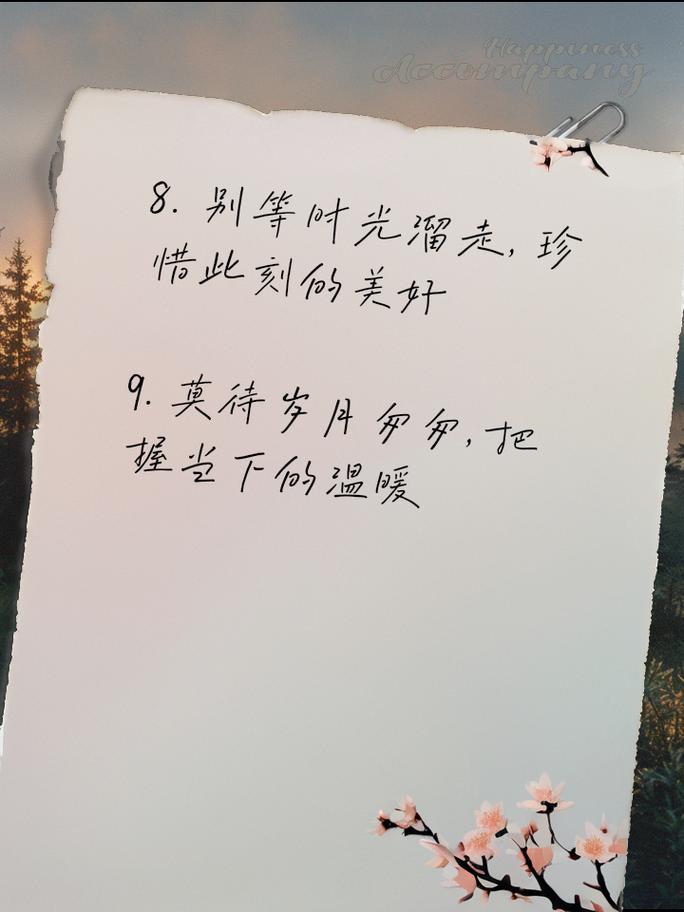 Happiness
Accompany
8. 别等时光溜走, 珍
惜此刻的美好
9. 莫待岁月匆匆, 把
握当下的温暖